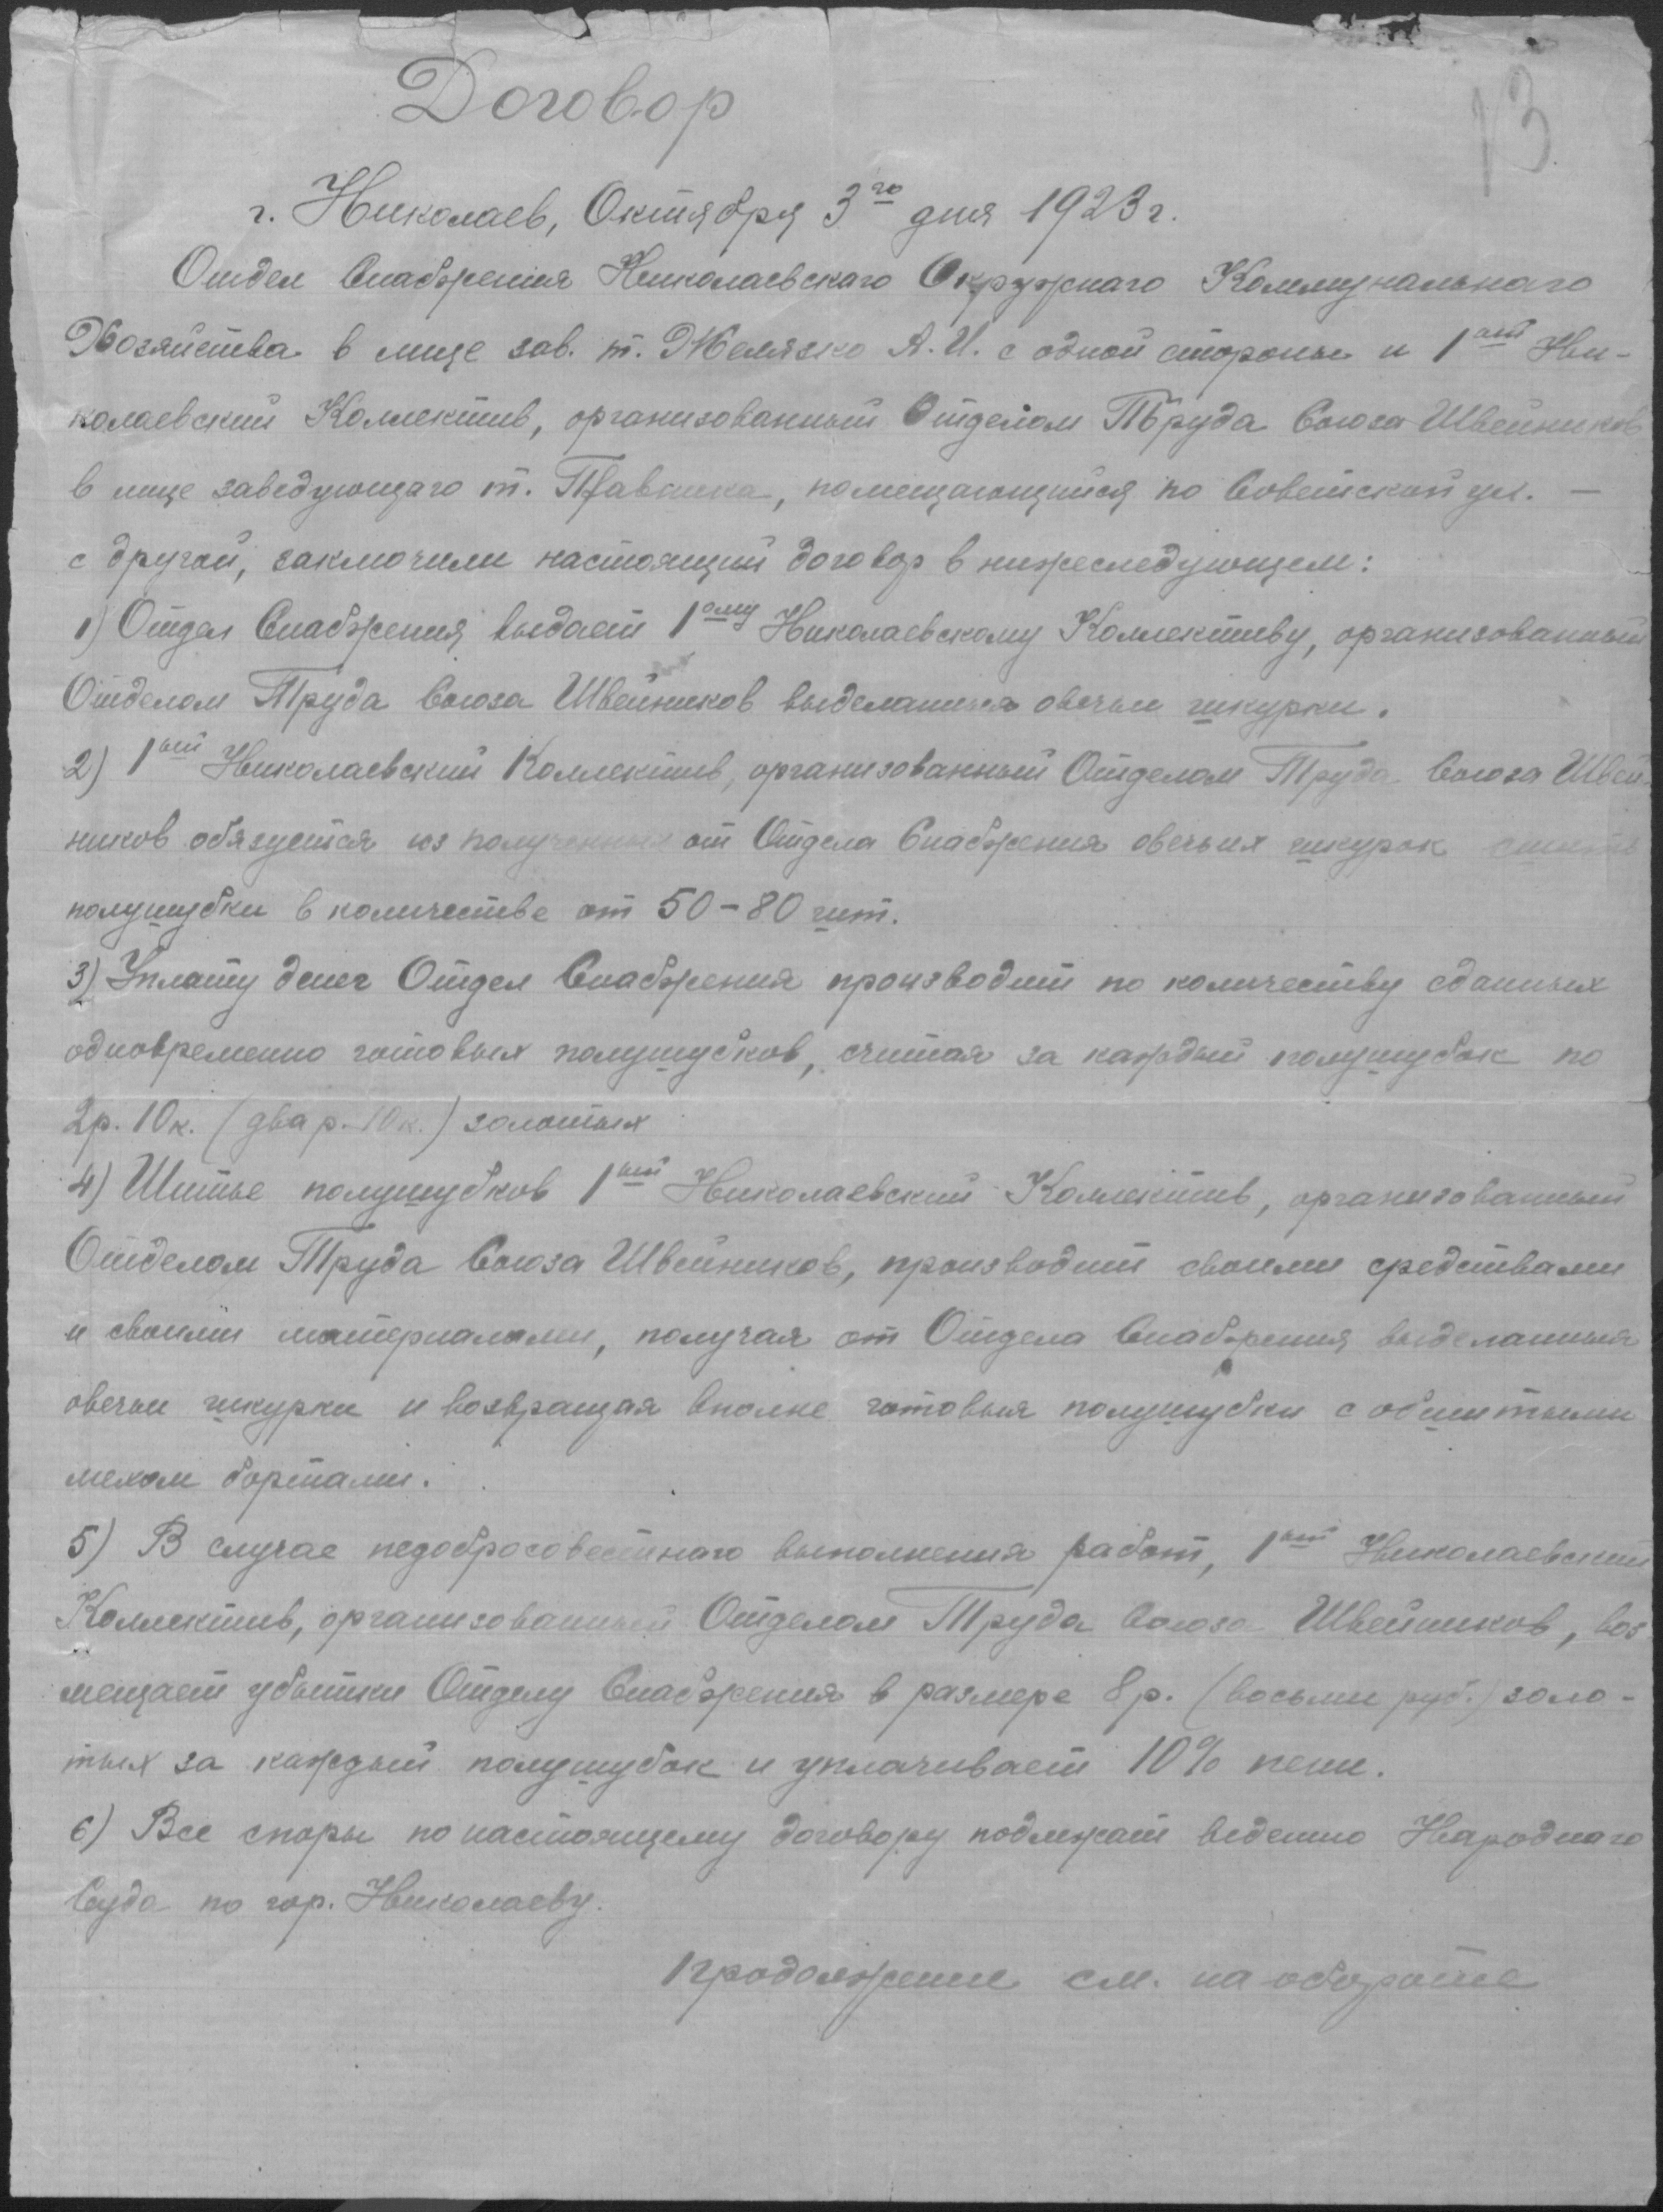 Договор
13
г. Николаев, Октября 3го дня 1923 г.
Отдел Снабжения Николаевскаго Окружнаго Коммунальнаго
Хозяйства в лице зав. т. Желязко А.И. с одной стороны и 1ый Ни-
колаевский Коллектив, организованный Отделом Труда Союза Швейников
в лице заведующаго т. помещающийся по Советской ул. —
с другой, заключили настоящий договор в нижеследующем:
1) Отдел Снабжения выдает 1ому Николаевскому Коллективу, организованный
Отделом Труда Союза Швейников выделанныя овечьи шкурки.
2) 1ый Николаевский Коллектив, организованный Отделом Труда Союза Швей-
ников обязуется из полученных от Отдела Снабжения овечьих шкурок сшить
полушубки в количестве от 50-80 шт.
3) Уплату денег Отдел Снабжения производит по количеству сданных
одновременно готовых полушубков, считая за каждый полушубок по
2р. 10к. (два р. 10к.) золотых
4) Шитье полушубков 1ый Николаевский Коллектив, организованный
Отделом Труда Союза Швейников, производит своими средствами
и своими материалами, получая от Отдела Снабжения выделанныя
овечьи шкурки и возвращая вполне готовыя полушубки с обшитыми
мехом бортами.
5) В случае недобросовестнаго выполнения работ, 1ый Николаевский
Коллектив, организованный Отделом Труда Союза Швейников, воз
мещает убытки Отделу Снабжения в размере 8р. (восьми руб.) золо-
тых за каждый полушубок и уплачивает 10% пени.
6) Все споры по настоящему договору подлежат ведению Народнаго
Суда по гор. Николаеву.
продолжение см. на обороте